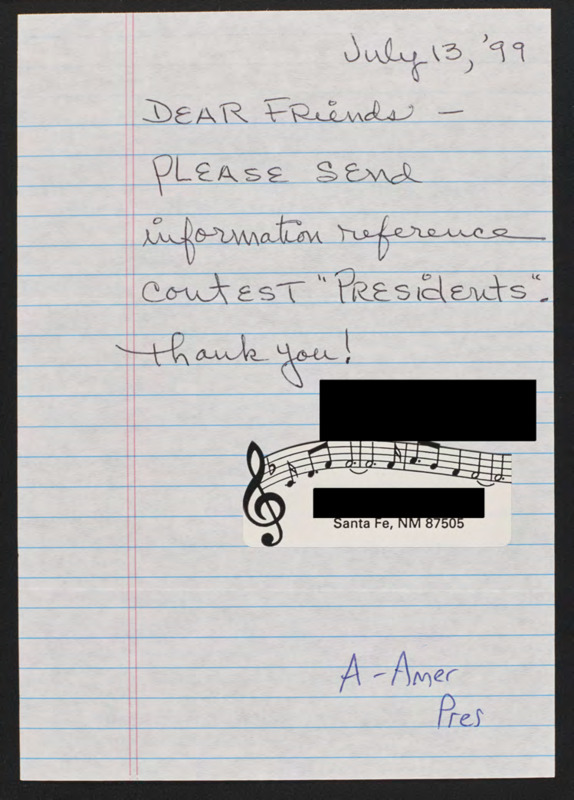 July 13, '99
DEAR FRiends —
PLEASE SEnd
information reference
contEST "PRESidents".
thank you!
Santa Fe, NM 87505
A-Amer
Pres